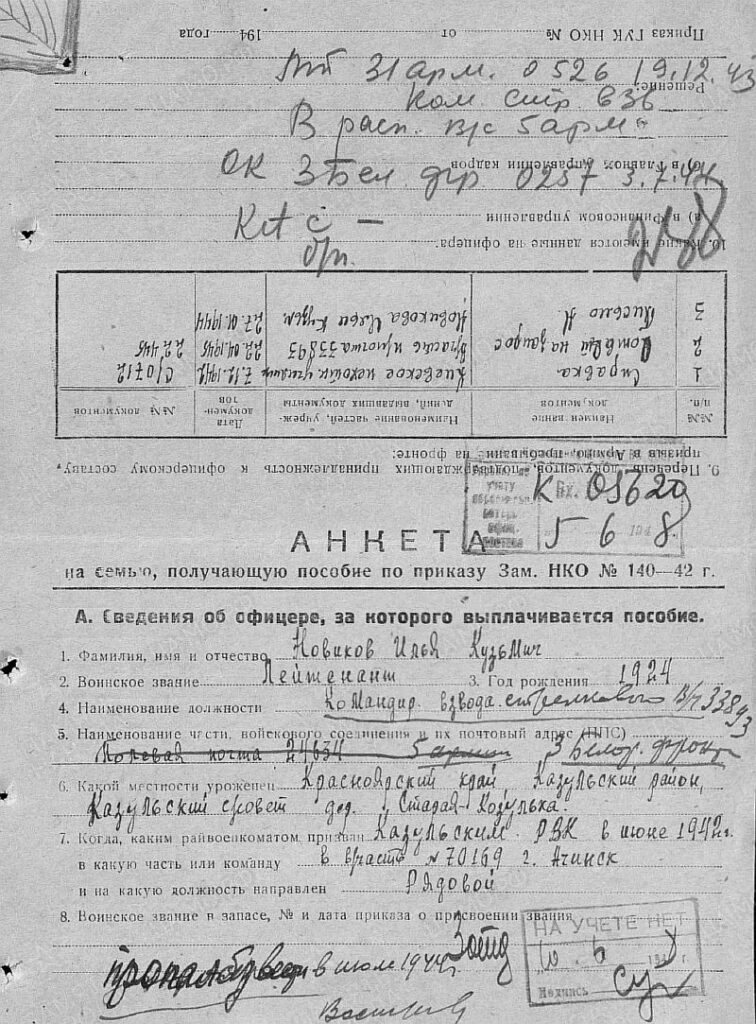 Приказ ГУК НКО № от 194 года
Решение:
31 арм. 0526 19.12.43
Ком. стр. взв
В расп. в/с 5 арм
б) в Главном управлении кадров
ОК 3 Бел фр 0237 3.7.44
а) в Финансовом управлении
10. Какие имеются данные на офицера:
№№ п/п. Наименование документов Наименование частей, учреждений, выдавших документы Дата документов №№ документов
1 Справка Киевское пехотн. училище 7.12.1942 С/0712
2 22.04.1945 22.445
3 Письмо Н. Новикова Ильи Кузьм. 27.01.1944
9. Перечень документов, подтверждающих принадлежность к офицерскому составу, призыв в Армию, пребывание на фронте:
Вх. 05620
5 6 1948
АНКЕТА
на семью, получающую пособие по приказу Зам. НКО № 140—42 г.
А. Сведения об офицере, за которого выплачивается пособие.
1. Фамилия, имя и отчество Новиков Илья Кузьмич
2. Воинское звание Лейтенант 3. Год рождения 1924
4. Наименование должности Командир взвода стрелкового В/ч 33893
5. Наименование части, войскового соединения и их почтовый адрес (ППС)
Полевая почта 24634 5 армии 3 Белор. фронт
6. Какой местности уроженец Красноярский край, Казульский район,
Казульский с/совет дер. Старая-Козулька.
7. Когда, каким райвоенкоматом призван Казульским РВК в июне 1942г.
в какую часть или команду в в/часть №70169 г. Ачинск
и на какую должность направлен Рядовой
8. Воинское звание в запасе, № и дата приказа о присвоении звания
НА УЧЕТЕ НЕТ
10 6 1948
Подпись
пропал б/вести в июле 1944г.